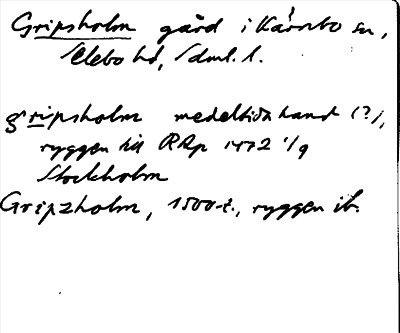 Gripsholm gård i Kärnbo sn,
Selebo hd, Södml. l.
gripsholm medeltida hand (?),
ryggen till RAp 1472 1/9
Stockholm
Gripzholm, 1500-t., ryggen ib.